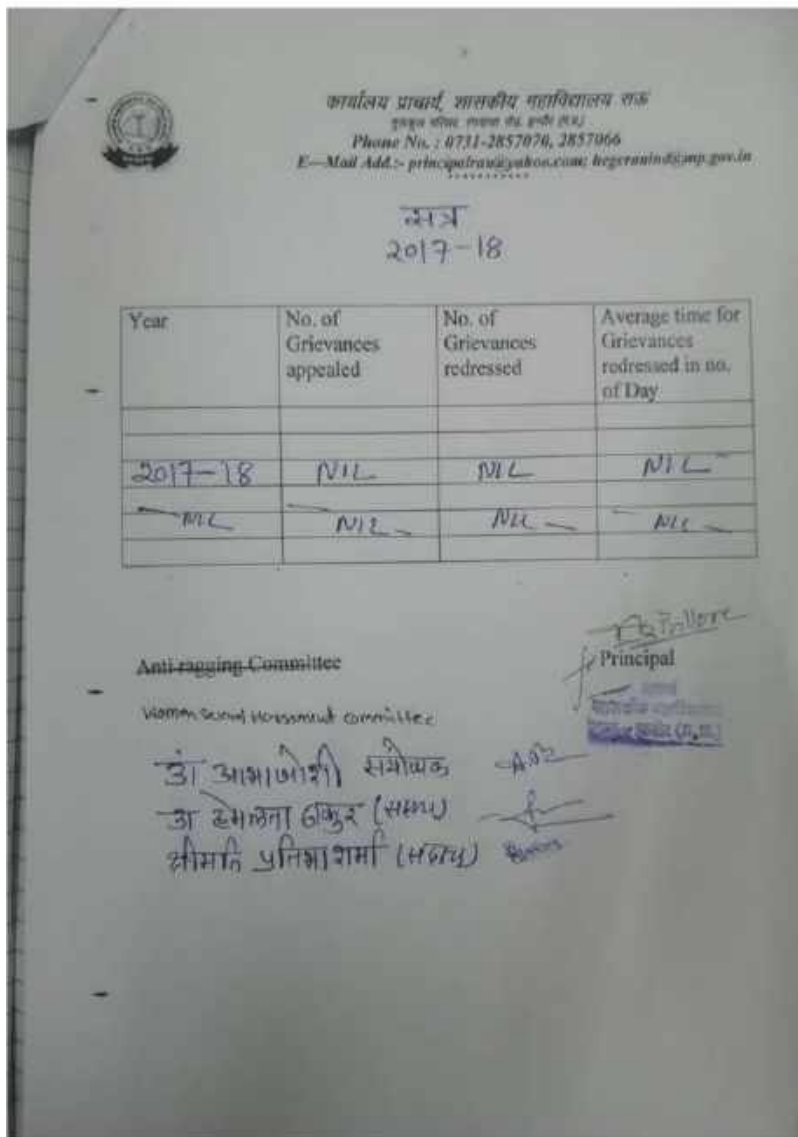 कार्यालय प्राचार्य, शासकीय महाविद्यालय राऊ
Phone No. : 0731-2857070, 2857066
E—Mail Add.:- principalrau@yahoo.com; hegcrauind@mp.gov.in
सत्र
2017-18
Year No. of Grievances appealed No. of Grievances redressed Average time for Grievances redressed in no. of Day
2017-18 NIL NIL NIL
NIL NIL NIL NIL
Principal
Anti-ragging Committee
Women Sexual Harassment Committee
डॉ आभा जोशी संयोजक
डॉ हेमलता ठाकुर (सदस्य)
श्रीमति प्रतिभा शर्मा (सदस्य)